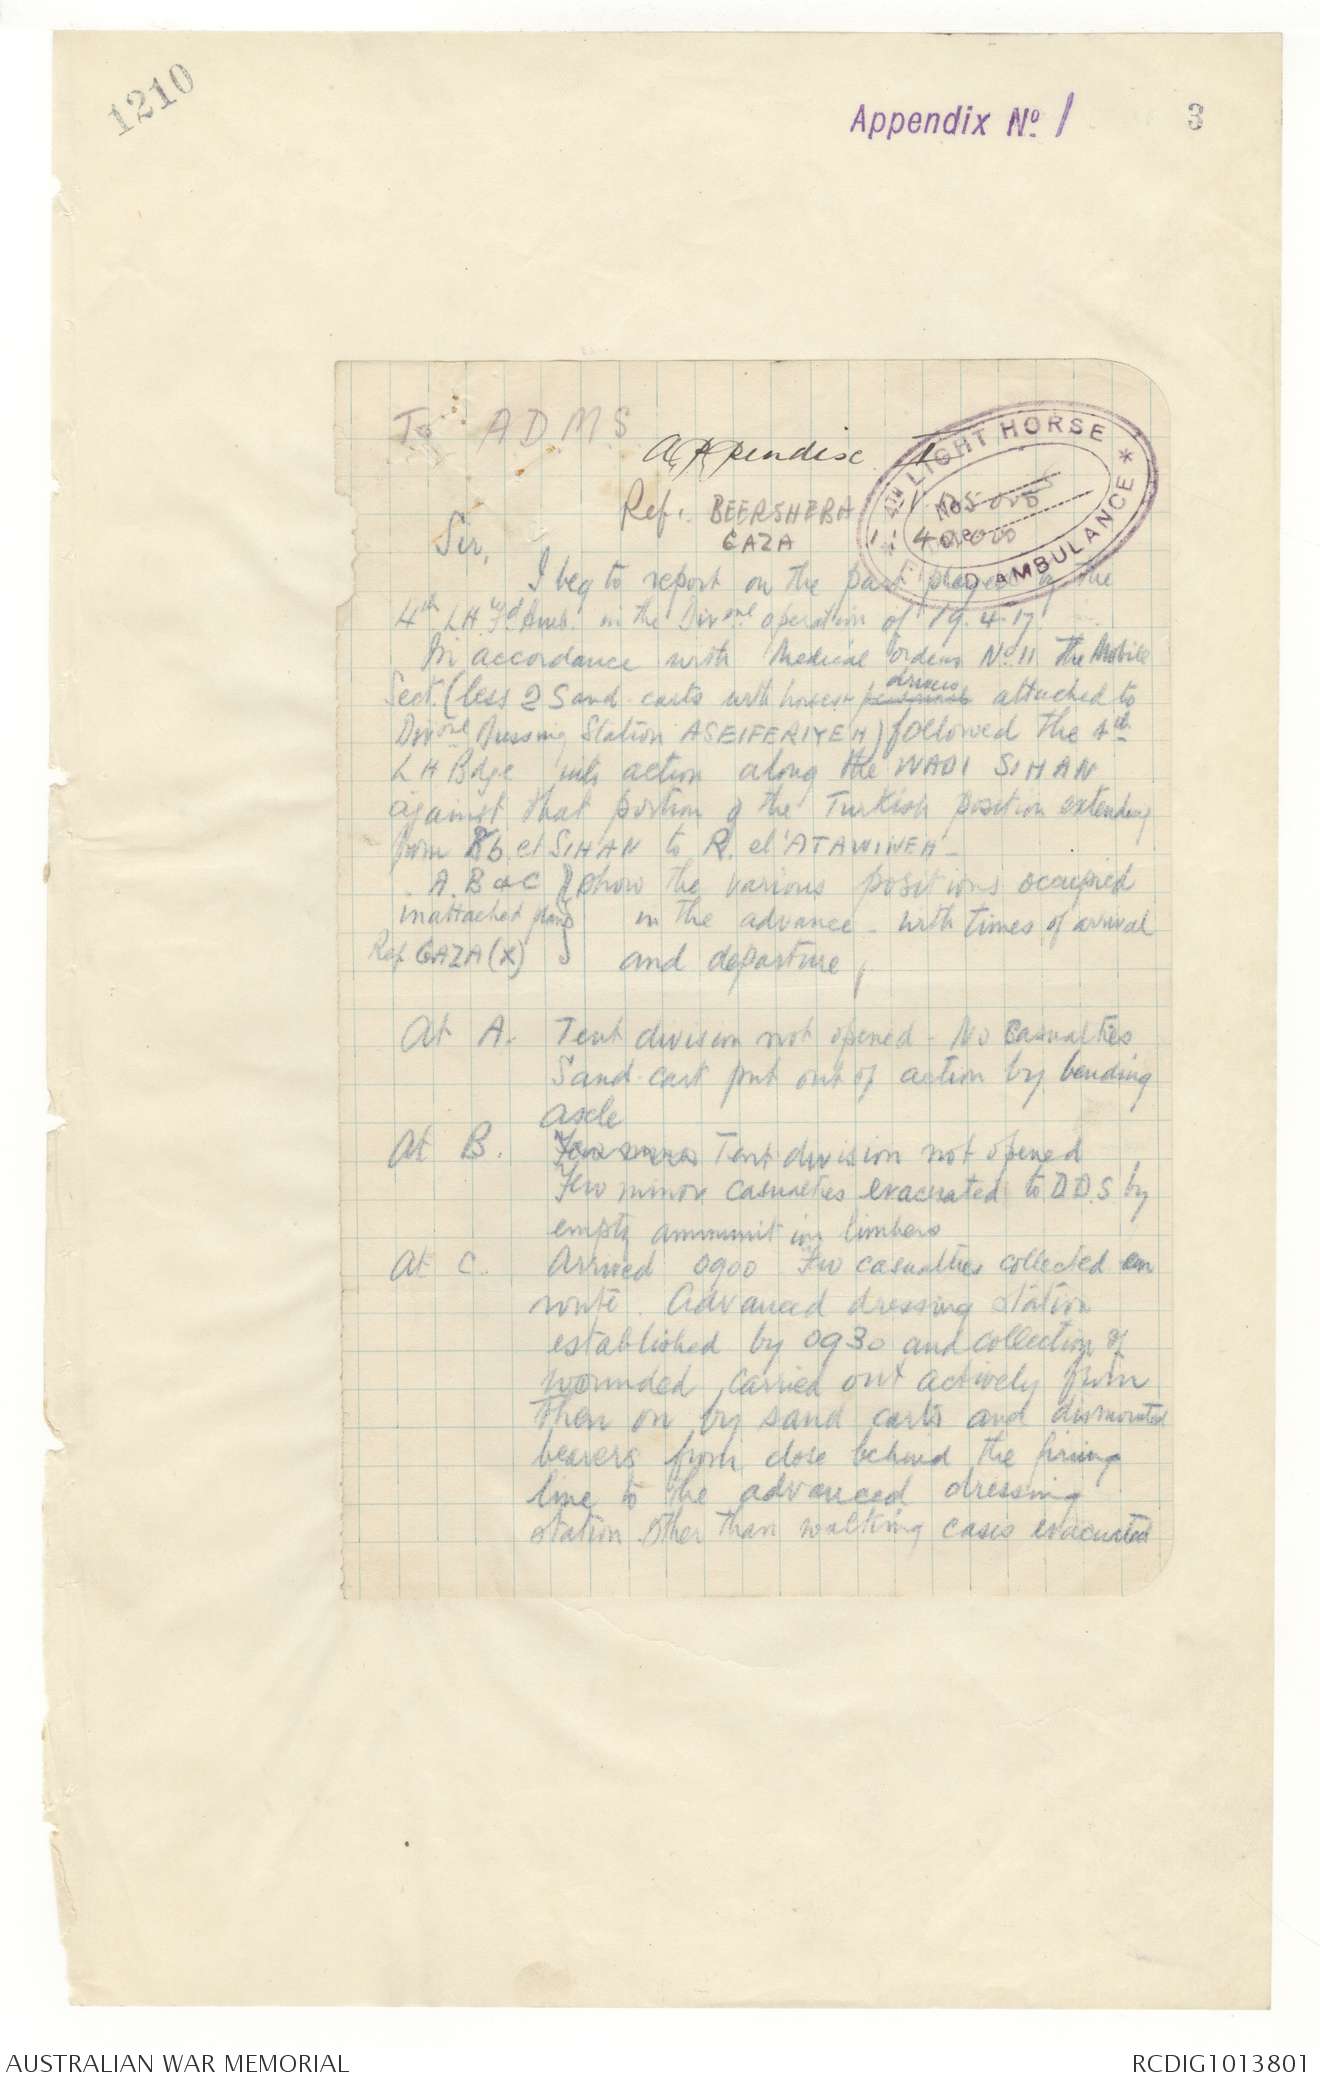 1210
Appendix No. 1
3
To ADMS
Appendix I
4TH LIGHT HORSE
FIELD AMBULANCE
Ref. BEERSHEBA
GAZA
Sir,
I beg to report on the part played by the
4th LH. Fd Amb. in the Divonl operation of 19.4.17.
In accordance with Medical Orders No 11 the Mobile
Sect. (less 2 Sand-carts with horses & drivers attached to
Divonl Dressing Station ASEIFERIYEH) followed the 4th
LH Bdge into action along the WADI SIHAN
against that portion of the Turkish position extending
from Kh. el SIHAN to R. el 'ATAWINEH -
A. B & C } show the various positions occupied
in attached plan } in the advance - with times of arrival
Ref GAZA (X) } and departure,
At A. Tent division not opened - No casualties
Sand-cart put out of action by bending
axle
At B. Tent division not opened
Few minor casualties evacuated to DDS by
empty ammunition limbers
At C. Arrived 0900 Few casualties collected en
route. Advanced dressing station
established by 0930 and collection of
wounded carried out actively from
then on by sand carts and dismounted
bearers from close behind the firing
line to the advanced dressing
station. Other than walking cases evacuated
AUSTRALIAN WAR MEMORIAL
RCDIG1013801